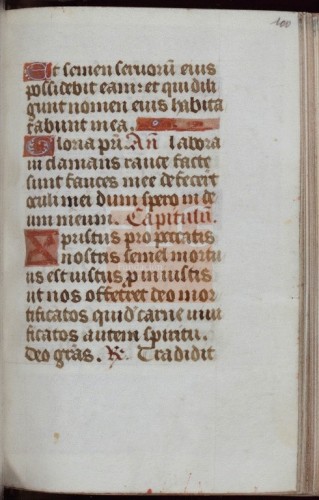 100
Et semen seruorũ eius
possidebit eam: et qui dili
gunt nomen eius habita
rabunt in ea.
Gloria pr̃i. Añ labora
ui clamans rauce facte
sunt fauces mee defecerũt
oculi mei dum spero in de
um meum. Capitulũ.
Xpristus pro peccatis
nostris semel mortu
us est iustus p in iustis
ut nos offerret deo mor
tificatos quid carne uiui
ficatos autem spiritu.
deo grãs. R. Tradidit